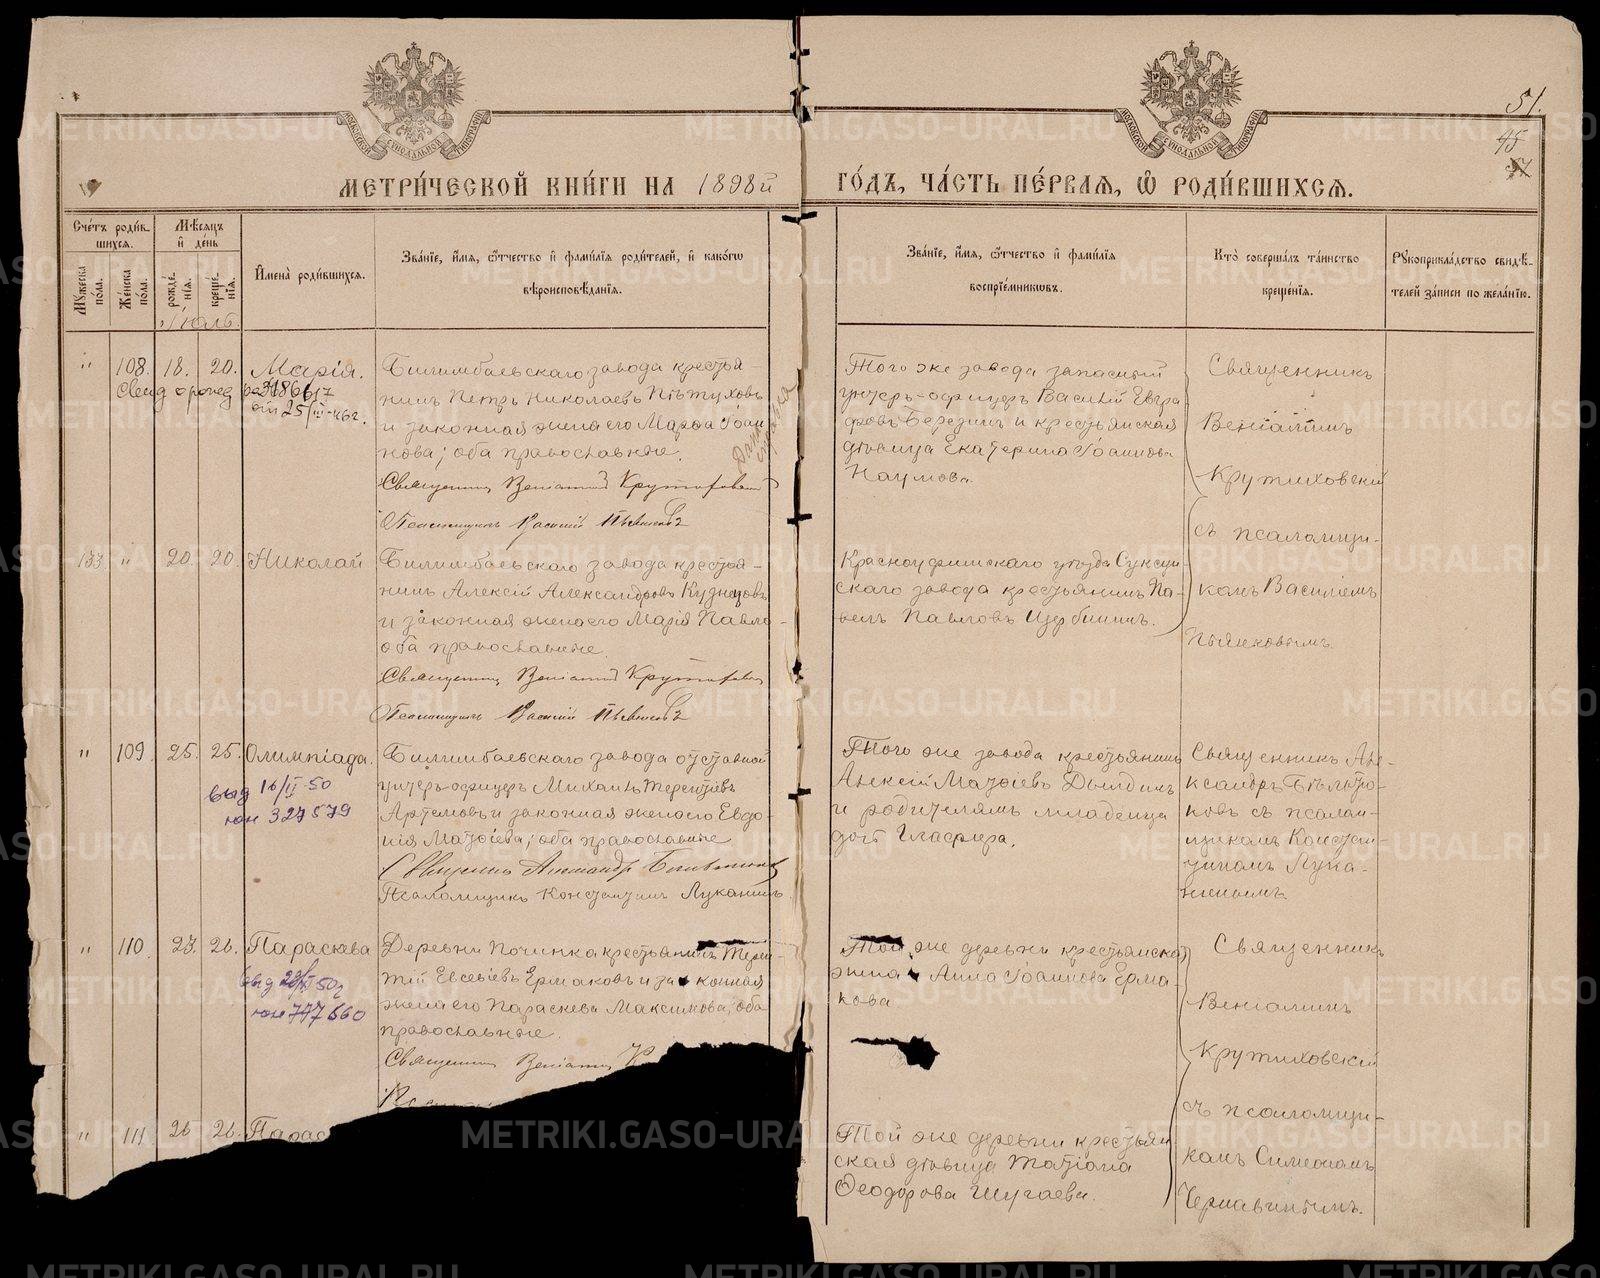 51.
45
МОСКОВСКОЙ СѴНОДАЛЬНОЙ ТИПОГРАФІИ
МОСКОВСКОЙ СѴНОДАЛЬНОЙ ТИПОГРАФІИ
МЕТРИ́ЧЕСКОЙ КНИ́ГИ НА 1898й ГО́ДЪ, ЧА́СТЬ ПЕ́РВАѦ, Ѡ РОДИ́ВШИХСѦ.
Сче́тъ роди́в-
шихся.
Мꙋ́жеска по́ла.
Же́нска по́ла.
Мѣ́сяцъ
и де́нь
рожде́нїя.
креще́нїя.
Имена̀ роди́вшихся.
Зва́нїе, и́мя, ѻ҆́тчество и фами́лїя роди́телей, и како́гѡ
вѣроисповѣ́данїя.
Зва́нїе, и́мя, ѻ҆́тчество и фами́лїя
воспрїе́мникѡвъ.
Кто̀ соверша́лъ та́инство
креще́нїя.
Рꙋкоприкла́дство свидѣ́-
телей за́писи по жела́нїю.
Іюль.
" 108. 18. 20. Марія.
Свид о рожд
от 25/III-46г.
Билимбаевскаго завода крестья
нинъ Петръ Николаевъ Пѣтуховъ
и законная жена его Марѳа Іоан
нова; оба православные.
Священникъ Веніаминъ Крутиховскій
Псаломщикъ Василій Пьянковъ
Того же завода запасный
унтеръ-офицеръ Василій Евгра
фовъ Березинъ и крестьянская
дѣвица Екатерина Іоаннова
Наумова.
Священникъ
Веніаминъ
Крутиховскій
съ псаломщи-
комъ Василіемъ
Пьянковымъ.
133 " 20. 20. Николай
Билимбаевскаго завода крестья-
нинъ Алексій Александровъ Кузнецовъ
и законная жена его Марія Павло-
оба православные.
Священникъ Веніаминъ Крутиховскій
Псаломщикъ Василій Пьянковъ
Красноуфимскаго уѣзда Суксун
скаго завода крестьянинъ Па-
велъ Павловъ Щербининъ.
" 109. 25. 25. Олимпіада.
выд 16/II-50
юн 327579
Билимбаевскаго завода отставной
унтеръ-офицеръ Михаилъ Терентіевъ
Артемьевъ и законная жена его Евдо-
кія Матѳіева; оба православные
Священникъ Александръ
Псаломщикъ Константинъ Луканинъ.
Того же завода крестьянинъ
Алексій Матѳіевъ Дылдинъ
и родителямъ младенца
дочь Гласфира.
Священникъ Але-
ксандръ
новъ съ псалом-
щикомъ Констан-
тиномъ Лука-
нинымъ.
" 110. 23. 26. Параскева
выд 50г
юн 777660
Деревни Починка крестьянинъ Терен-
тій Евсевіевъ Ермаковъ и законная
жена его Параскева Максимова; оба
православные.
Священникъ Веніаминъ К
Той же деревни крестьянска
жена Анна Іоаннова Ерма
кова
Священникъ
Веніаминъ
Крутиховскій
съ псаломщи-
комъ Симеономъ
Чернавинымъ.
" 111 26 26. Парас
Той же деревни крестьян
ская дѣвица Татіана
Ѳеодорова Шугаева.